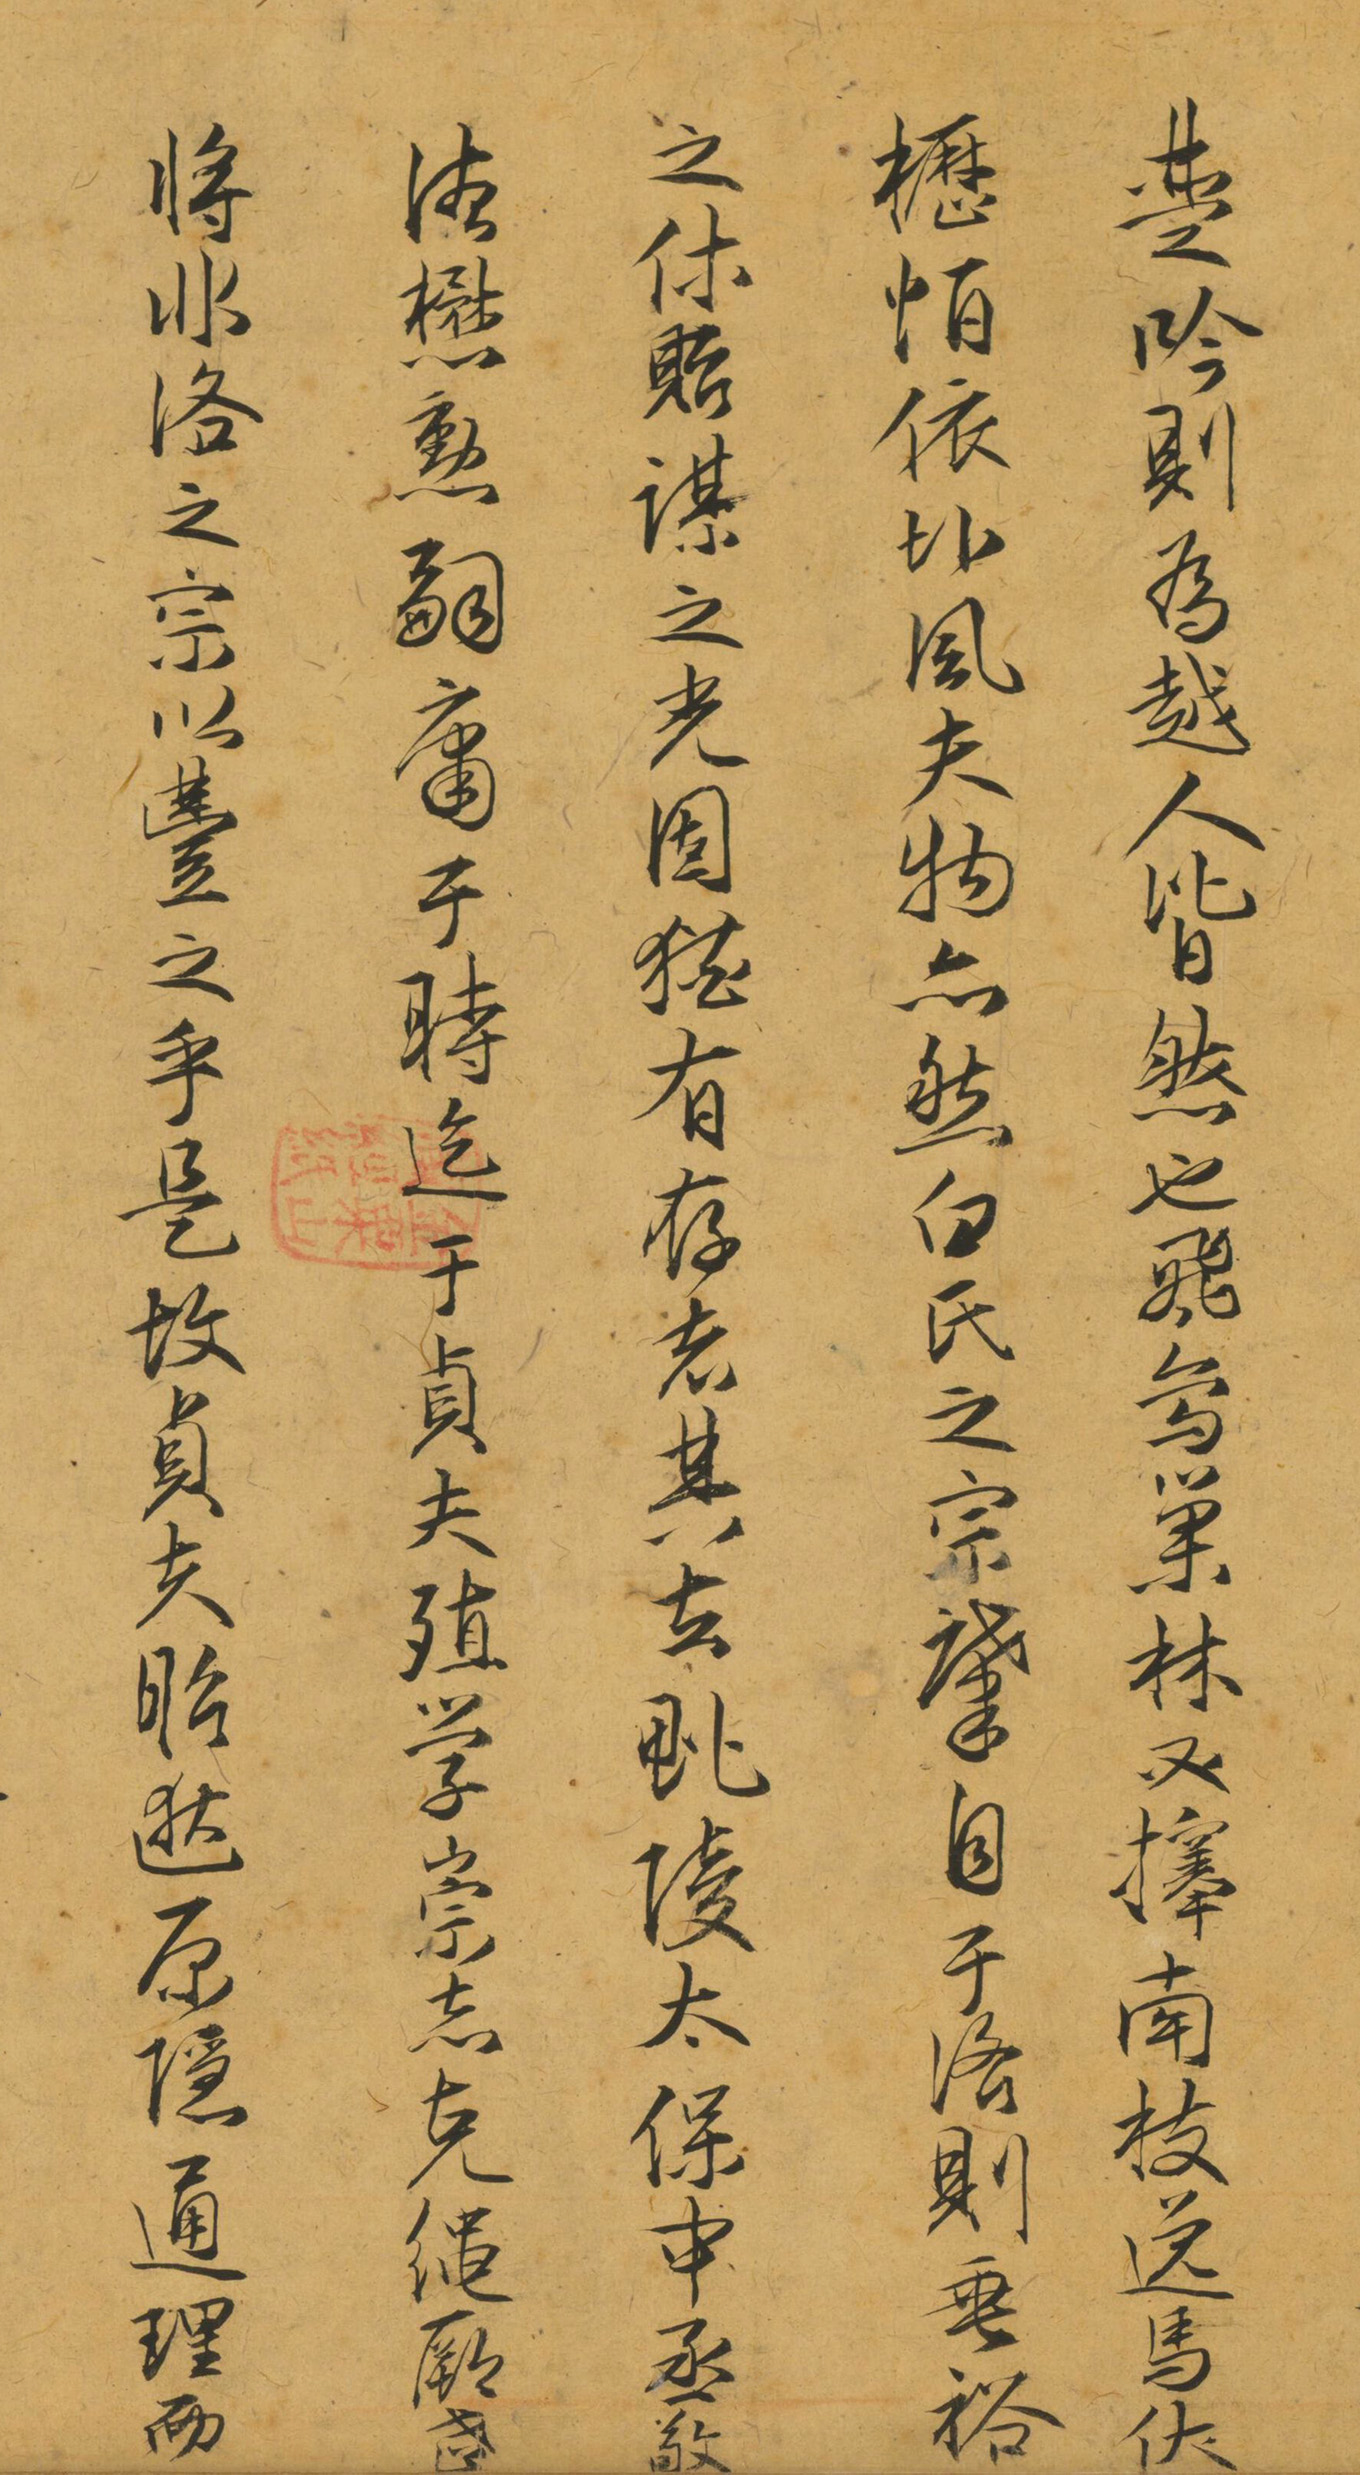 楚吟則為越人皆然也飛鳥巢林必擇南枝逸馬伏
櫪怕依北風夫物亦然白氏之宗肇自于洛則垂裕
之休貽謀之光固猶有存者其在毗陵太保中丞敬
德懋勳嗣庸于時迄于貞夫殖學崇志克繩厥武
將非洛之宗以豐之乎是故貞夫貽逖原隱通理而